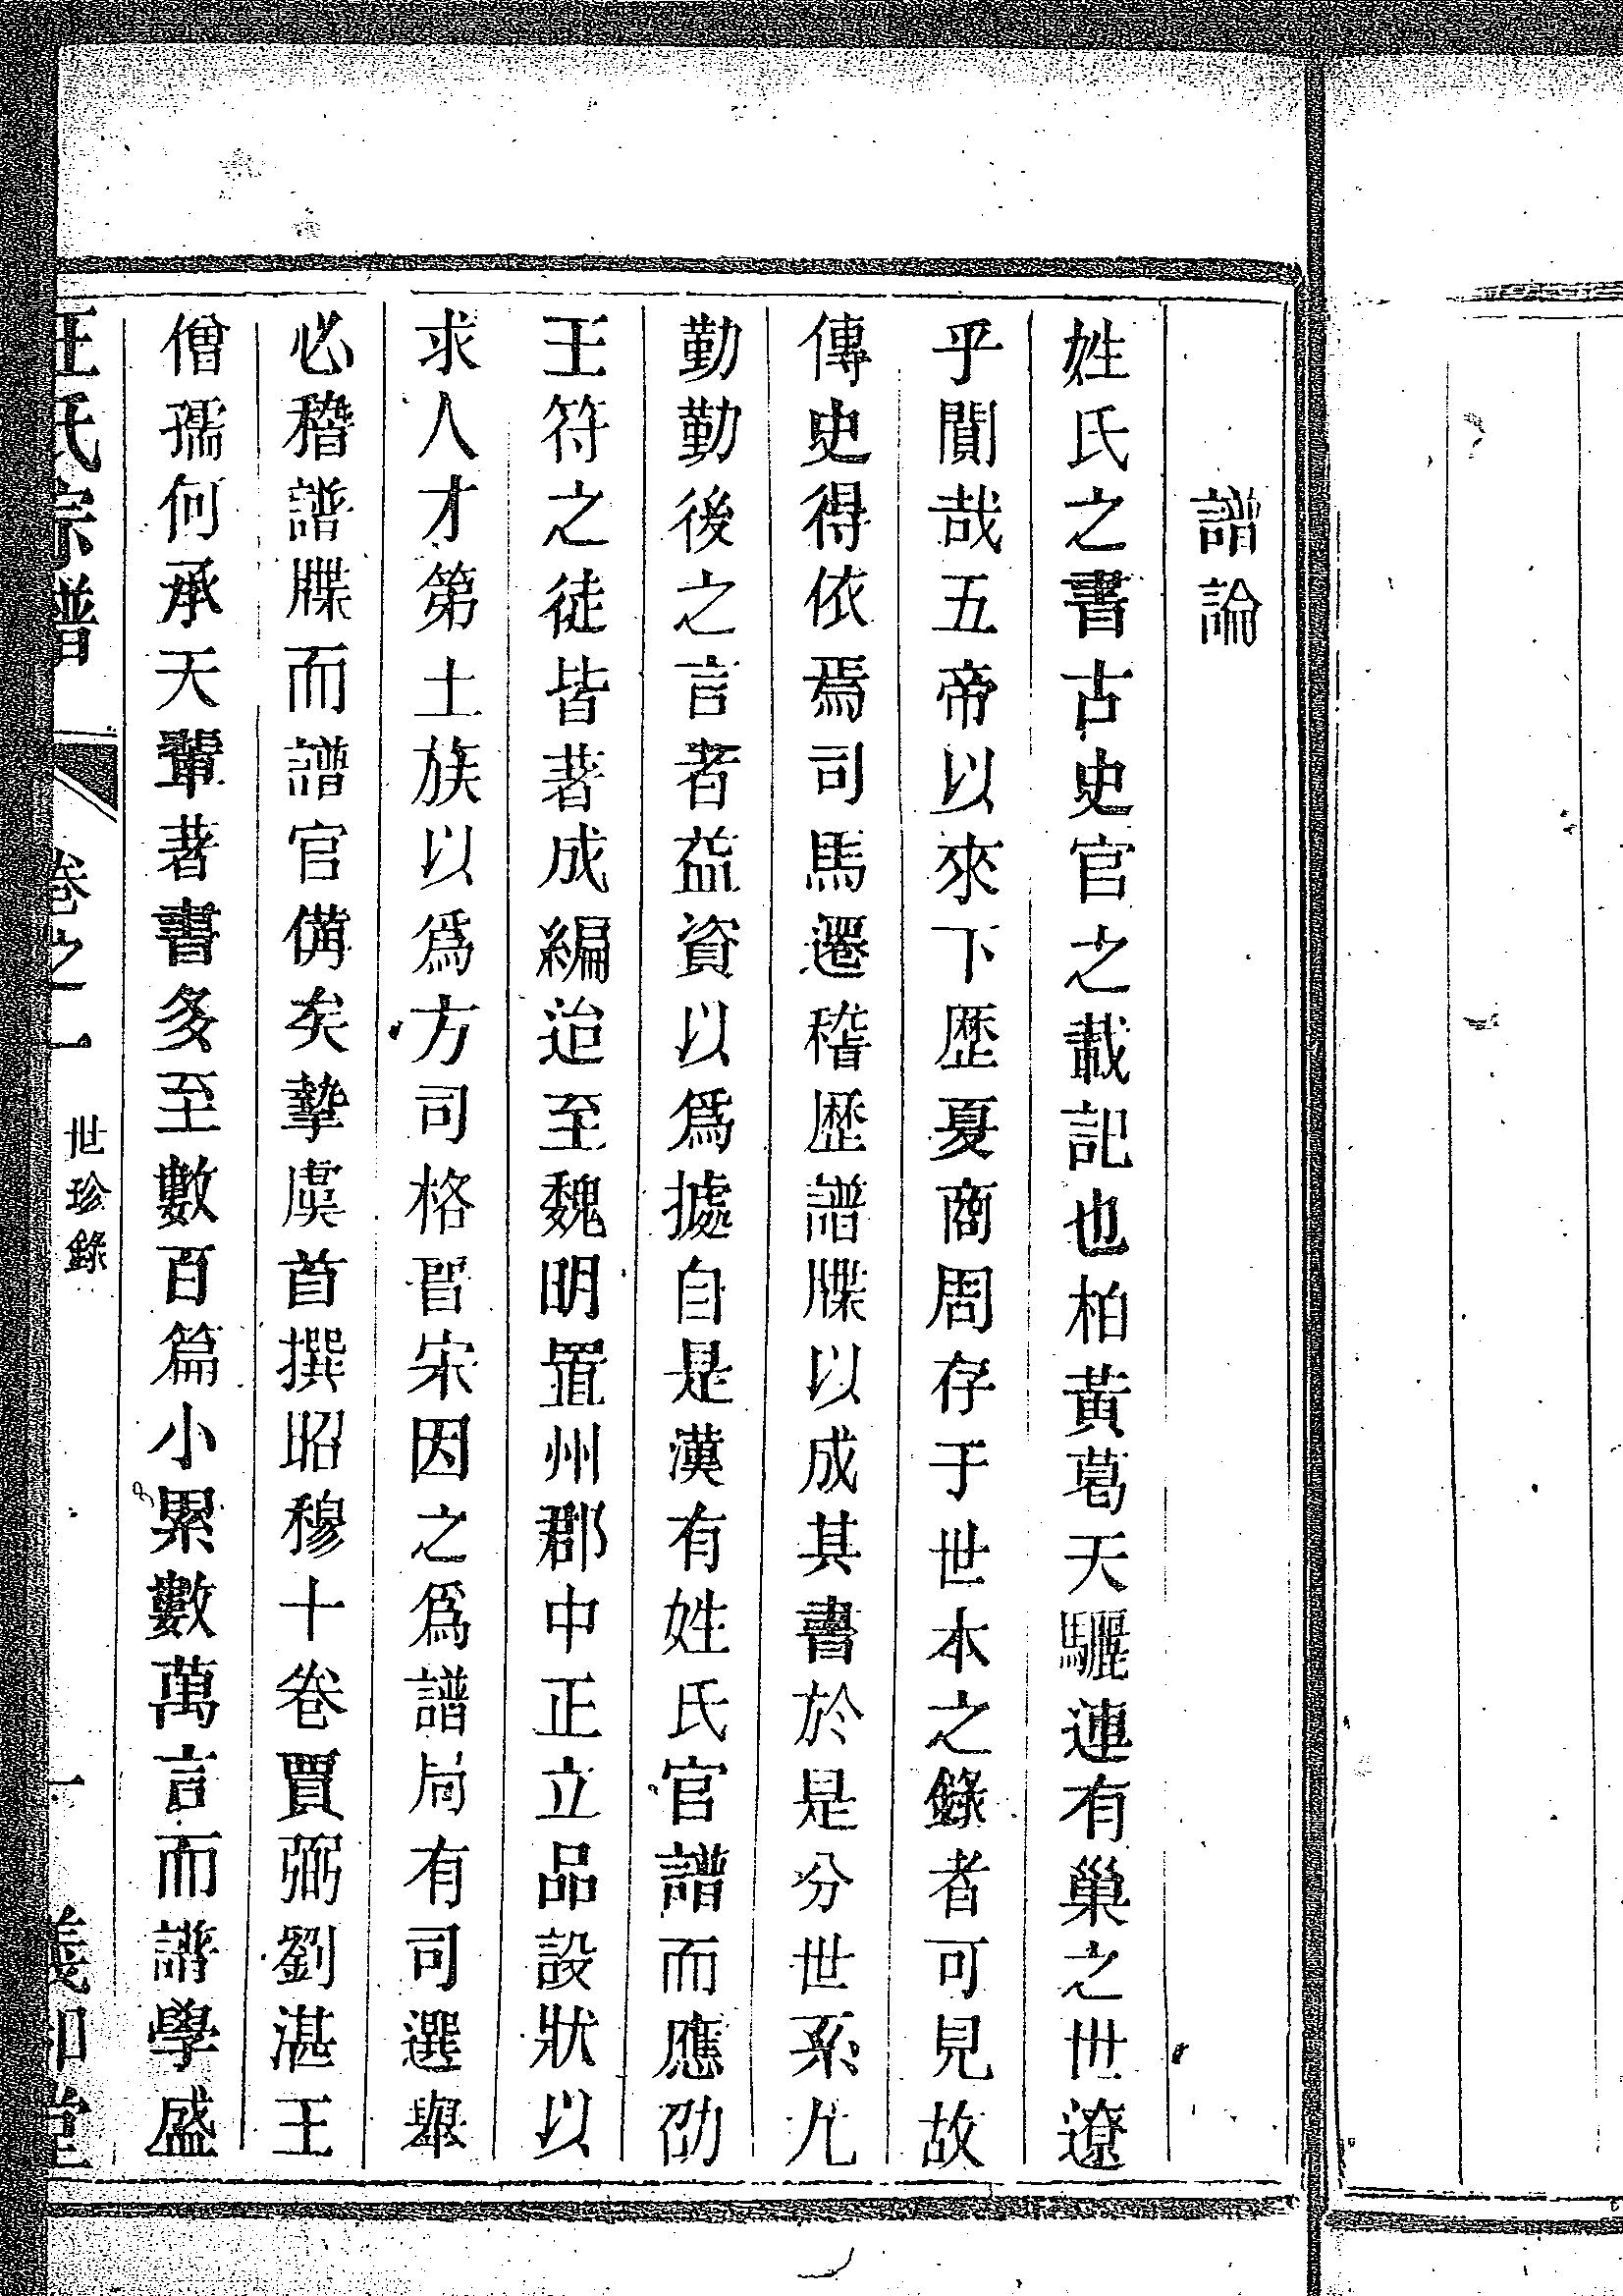 譜論
姓氏之書古史官之載記也柏黃葛天驪連有巢之世遼
乎閴哉五帝以來下歷夏商周存于世本之錄者可見故
傳史得依焉司馬遷稽歷譜牒以成其書於是分世系尢
勤勤後之言者益資以爲據自是漢有姓氏官譜而應劭
王符之徒皆著成編迨至魏明置州郡中正立品設狀以
求人才第士族以爲方司格晋宋因之爲譜局有司選舉
必稽譜牒而譜官備矣摯虞首撰昭穆十卷賈弼劉湛王
僧孺何承天輩著書多至數百篇小累數萬言而譜學盛
王氏宗譜 卷之一 世珍錄 一 義和堂